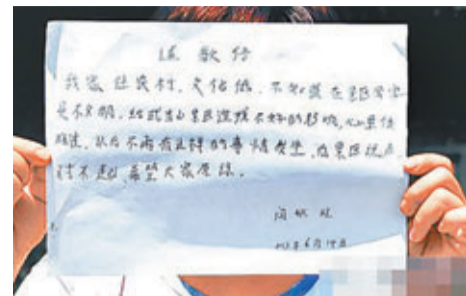 道歉信
我家住农村，文化低，不知道在景区写字
是不文明，给武当山景区造成不好的影响，心里很
难过，以后不再有这样的事情发生，向景区说声
对不起，希望大家原谅。
6月19日